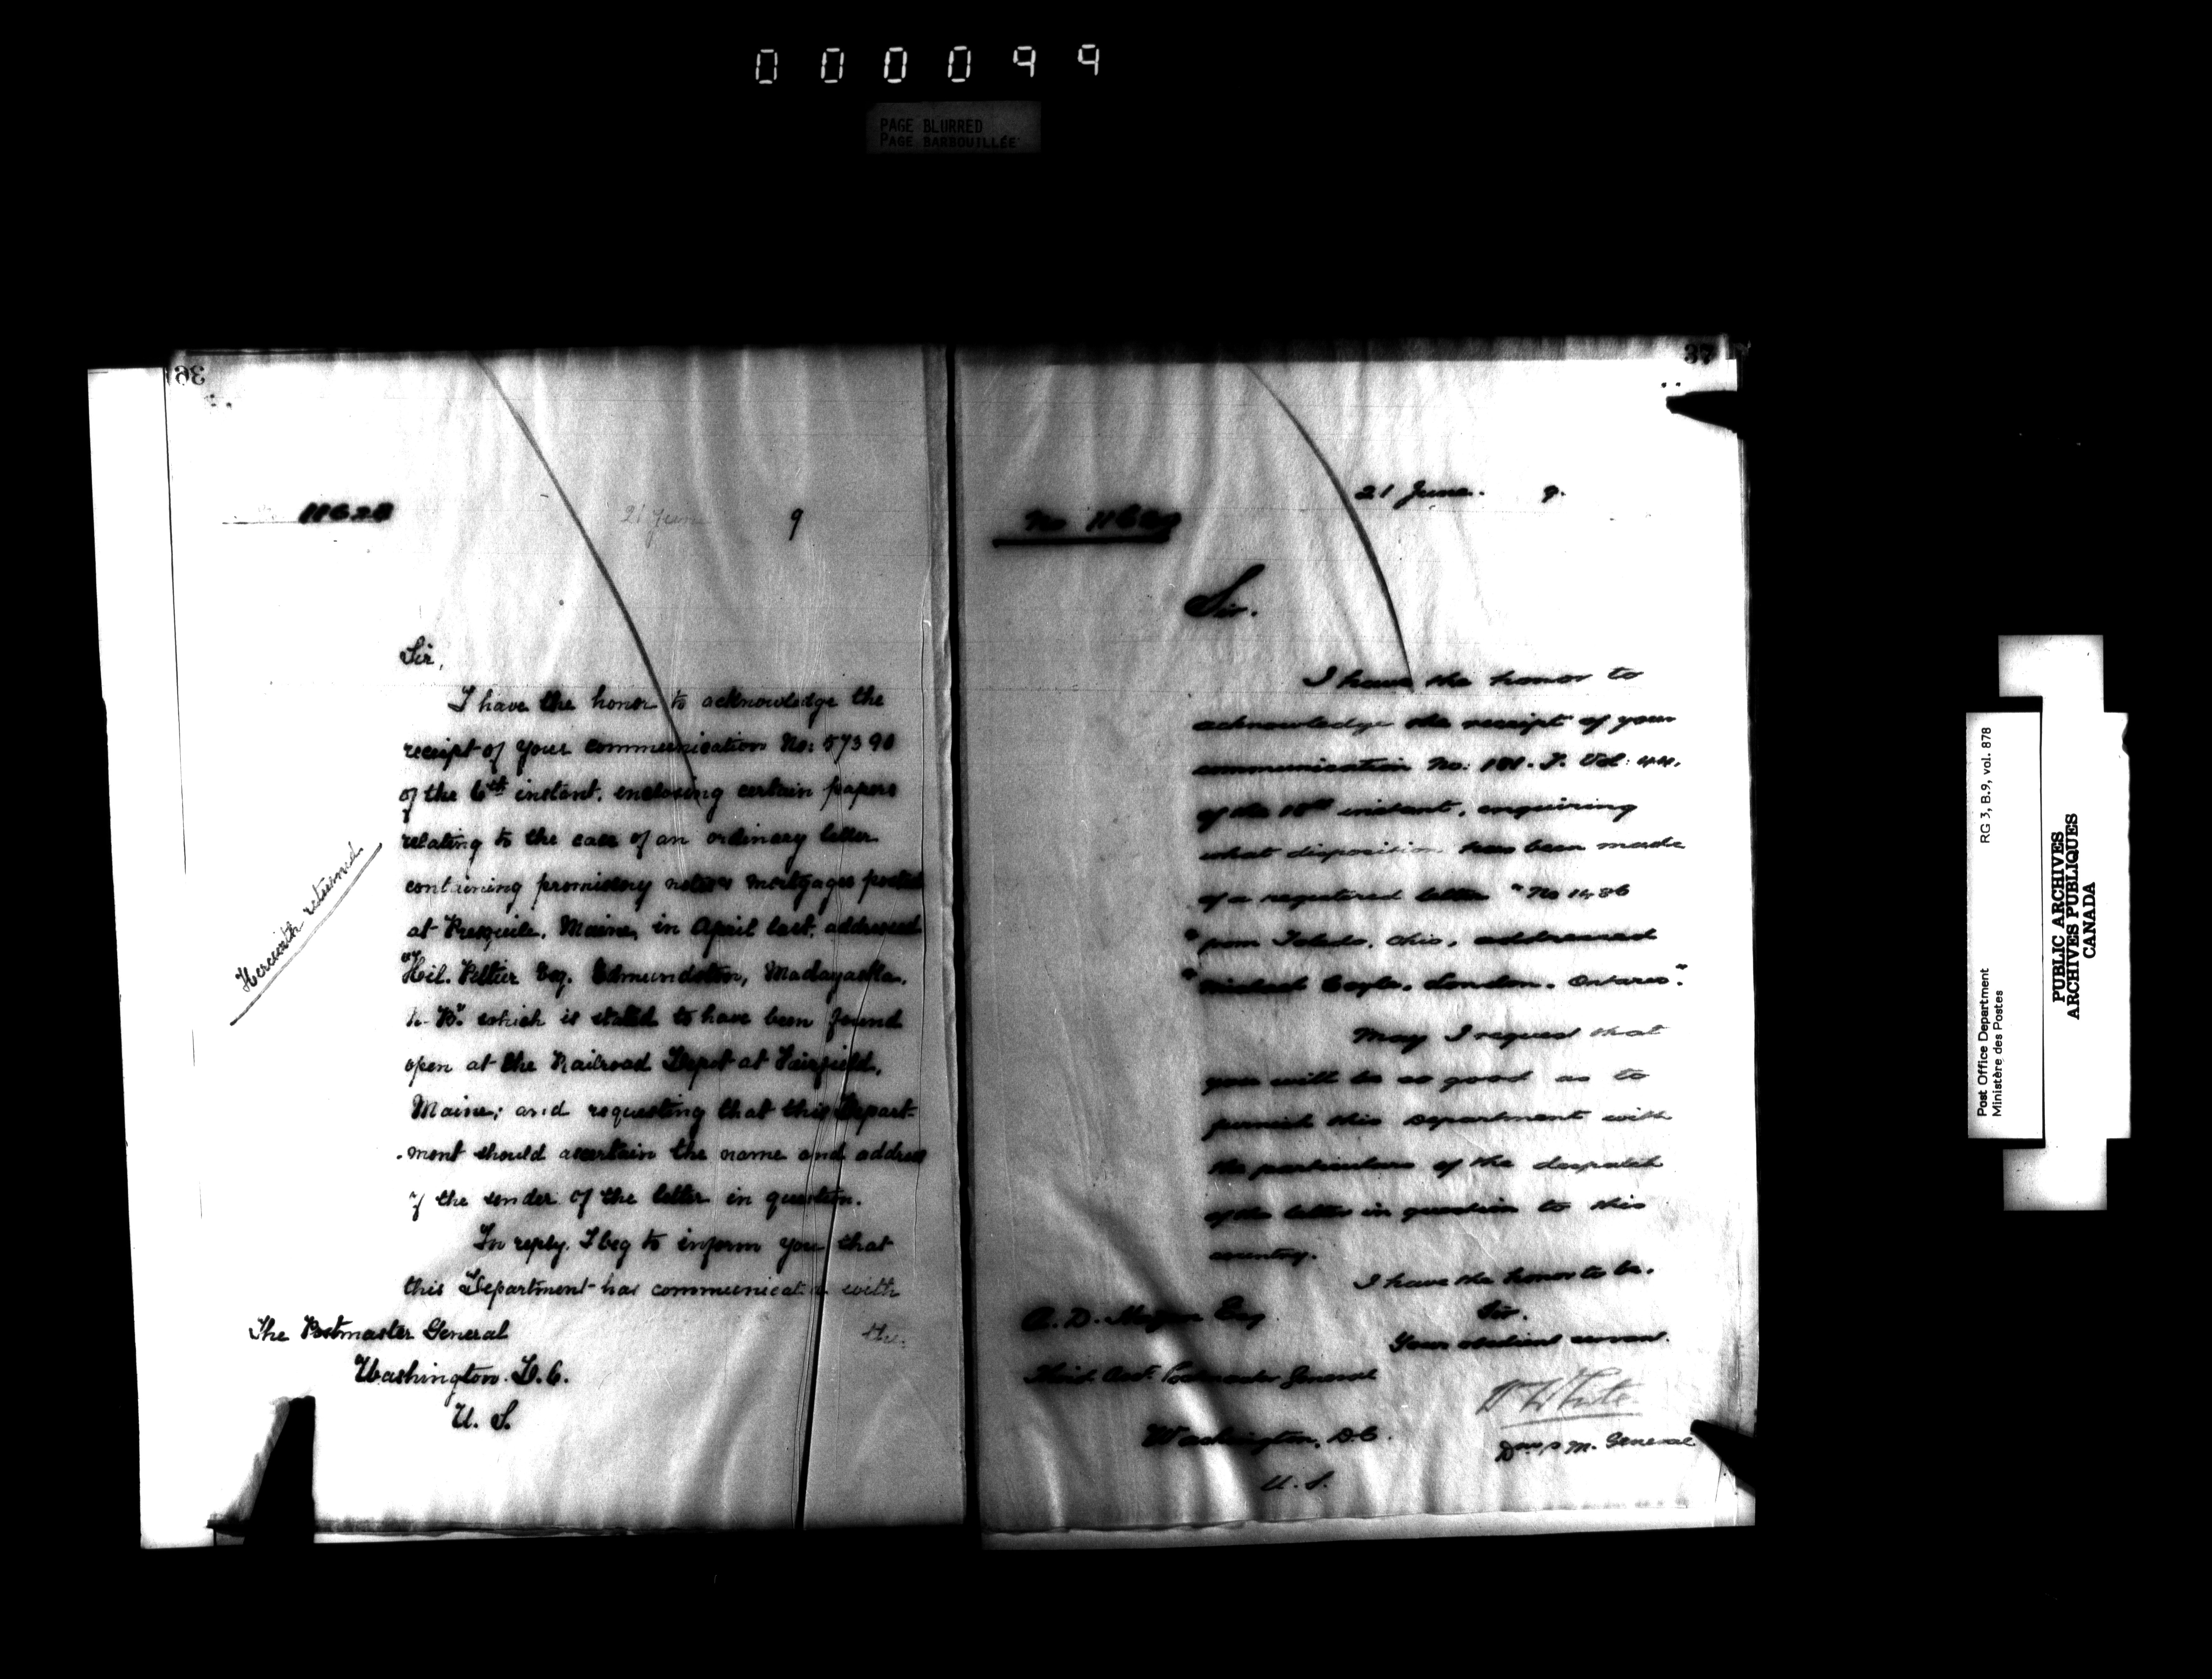 000099
PAGE BLURRED
PAGE BARBOUILLÉE
36
11628
21 June 9
Sir,
I have the honor to acknowledge the
receipt of your communication No: 57390
of the 6th instant, enclosing certain papers
relating to the case of an ordinary letter
containing promissory notes & mortgages posted
at Presquile, Maine, in April last, addressed
Hil. Peltier Esq. Edmundston, Madawaska,
N. B. which is stated to have been found
open at the Railroad Depot at Fairfield,
Maine; and requesting that this Depart-
-ment should ascertain the name and address
of the sender of the letter in question.
In reply, I beg to inform you that
this Department has communicated with
the
The Postmaster General
Washington. D.C.
U. S.
Herewith returned.
37
21 June. 9.
No
Sir.
I have the honor to
acknowledge the receipt of your
communication No: Vol: 44,
of the instant, enquiring
what disposition has been made
of a registered letter "No 1436
"from Toledo, Ohio, addressed
"Michael Coyle, London, Ontario."
May I request that
you will be so good as to
furnish this Department with
the particulars of the despatch
of the letter in question to this
country.
I have the honor to be.
Sir.
Your obedient servant.
W White
D M. General
A. D. Esq
Third Asst. Postmaster General
Washington, D.C.
U. S.
Post Office Department
Ministère des Postes
RG 3, B.9, vol. 878
PUBLIC ARCHIVES
ARCHIVES PUBLIQUES
CANADA